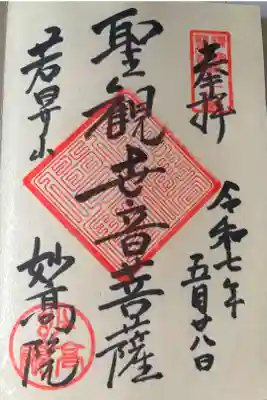 奉拝
令和七年
五月廿八日
聖観世音菩薩
妙高院